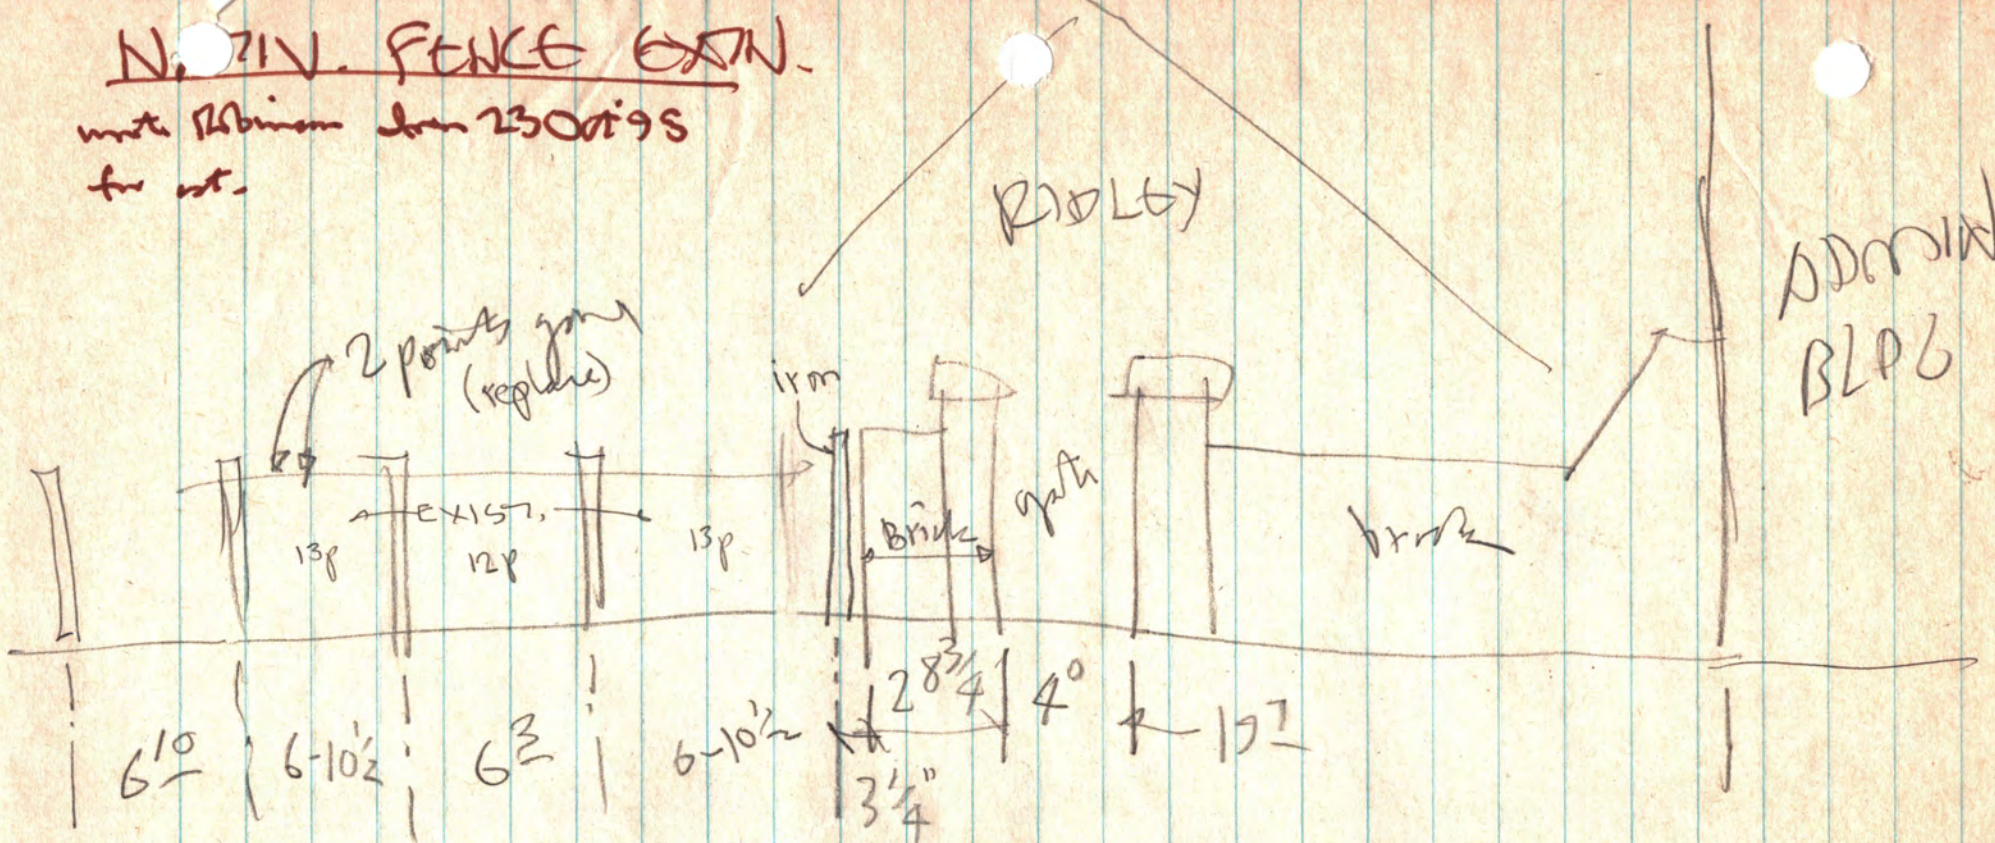 N. DIV. FENCE EXTN.
wrote Robinson Iron 23 Oct 95
for est.
RIDLEY
ADMIN
BLDG
2 points gone
(replace)
iron
EXIST.
13p
12p
13p
Brick
gate
brick
6 10
6-10 1/2
6 3
6-10 1/2
3 1/4"
2 8 3/4
4 0